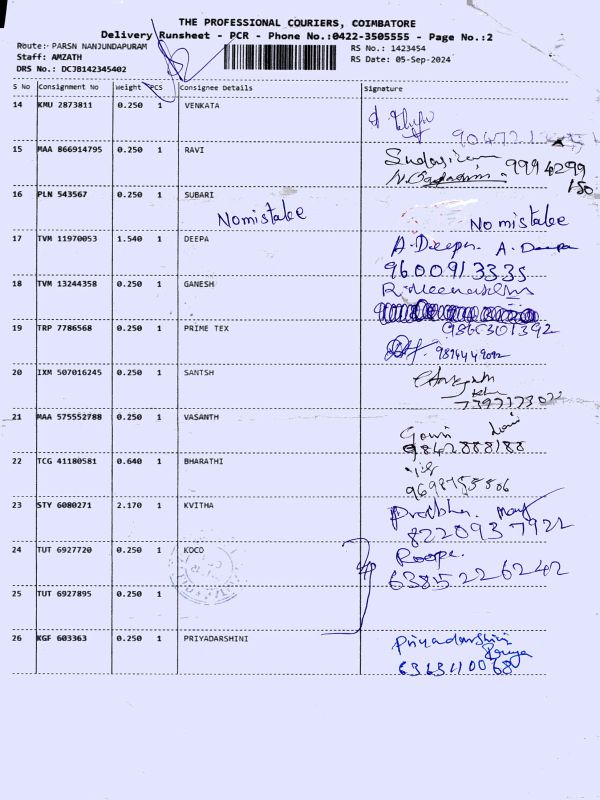 THE PROFESSIONAL COURIERS, COIMBATORE
Delivery Runsheet - PCR - Phone No.:0422-3505555 - Page No.:2
Route:- PARSN NANJUNDAPURAM
RS No.: 1423454
Staff: AMZATH
RS Date: 05-Sep-2024
DRS No.: DCJB142345402
S No Consignment No Weight PCS Consignee Details Signature
14 KMU 2873811 0.250 1 VENKATA
15 MAA 866914795 0.250 1 RAVI
9994299
150
16 PLN 543567 0.250 1 SUBARI
No mistake No mistake
17 TVM 11970053 1.540 1 DEEPA A.Deepa. A.Deepa
9600913335
18 TVM 13244358 0.250 1 GANESH
19 TRP 7786568 0.250 1 PRIME TEX
20 IXM 507016245 0.250 1 SANTSH
21 MAA 575552788 0.250 1 VASANTH
Gowri
9842888188
22 TCG 41180581 0.640 1 BHARATHI
23 STY 6080271 2.170 1 KVITHA Prabha.
8220937922
24 TUT 6927720 0.250 1 KOCO Roopa.
6385226242
25 TUT 6927895 0.250 1
26 KGF 603363 0.250 1 PRIYADARSHINI Priyadarshini
Priya
6363110068